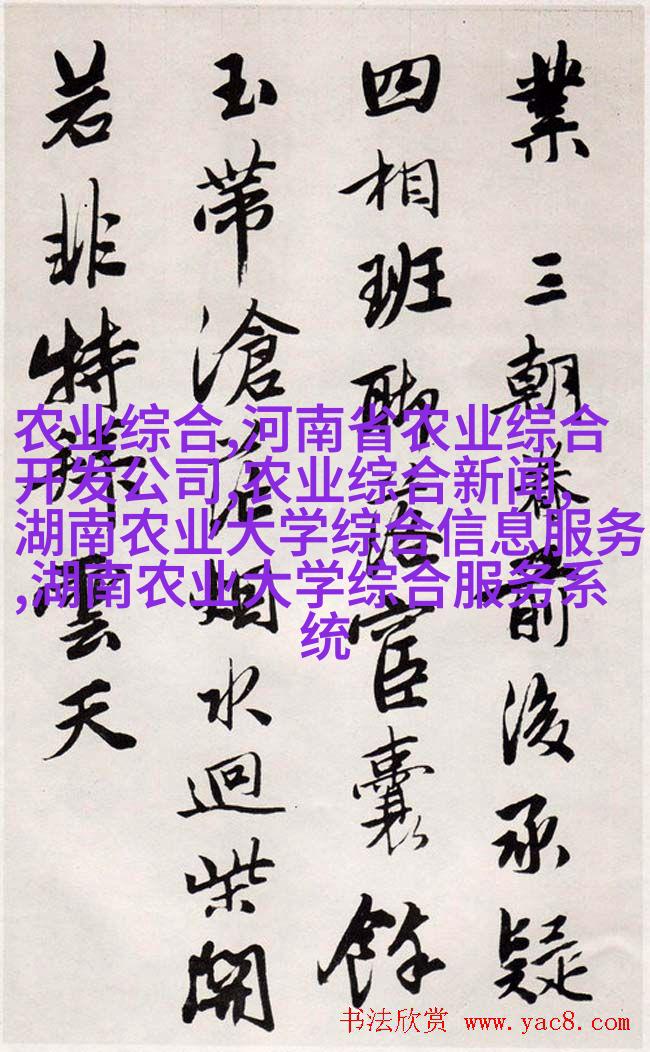 業三朝前後承疑
四相班宦囊餘
玉帶滄茫烟水迴柴開
若非特雲天
农业综合,河南省农业综合
开发公司,农业综合新闻,
湖南农业大学综合信息服务
,湖南农业大学综合服务系
统
书法欣赏 www.yac8.com